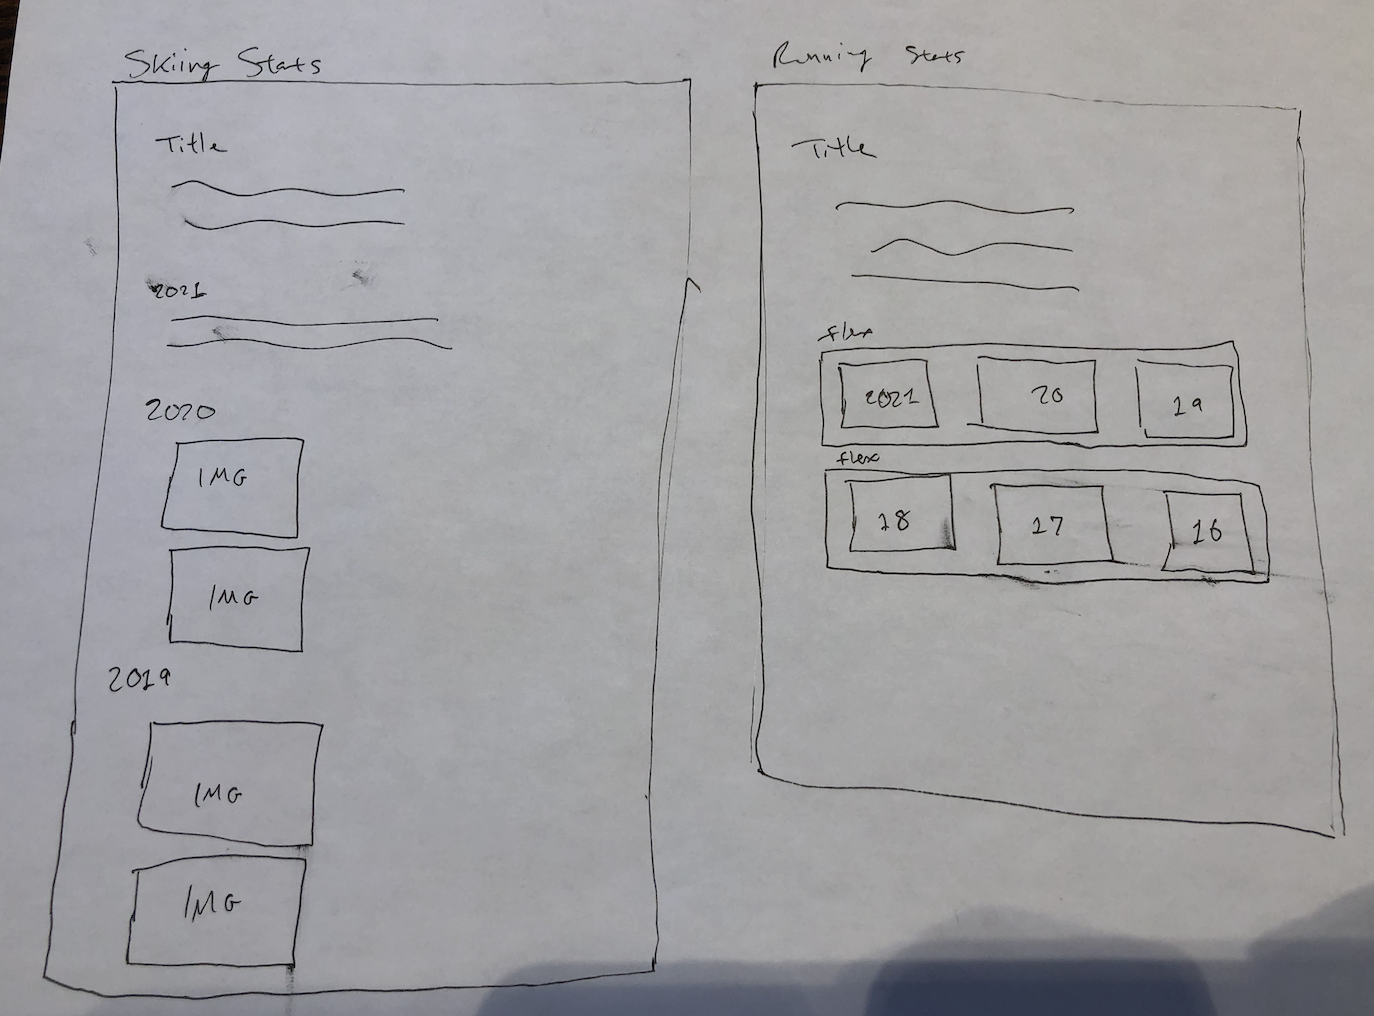 Skiing Stats
Title
2021
2020
IMG
IMG
2019
IMG
IMG
Running Stats
Title
flex
2021 20 19
flex
18 17 16